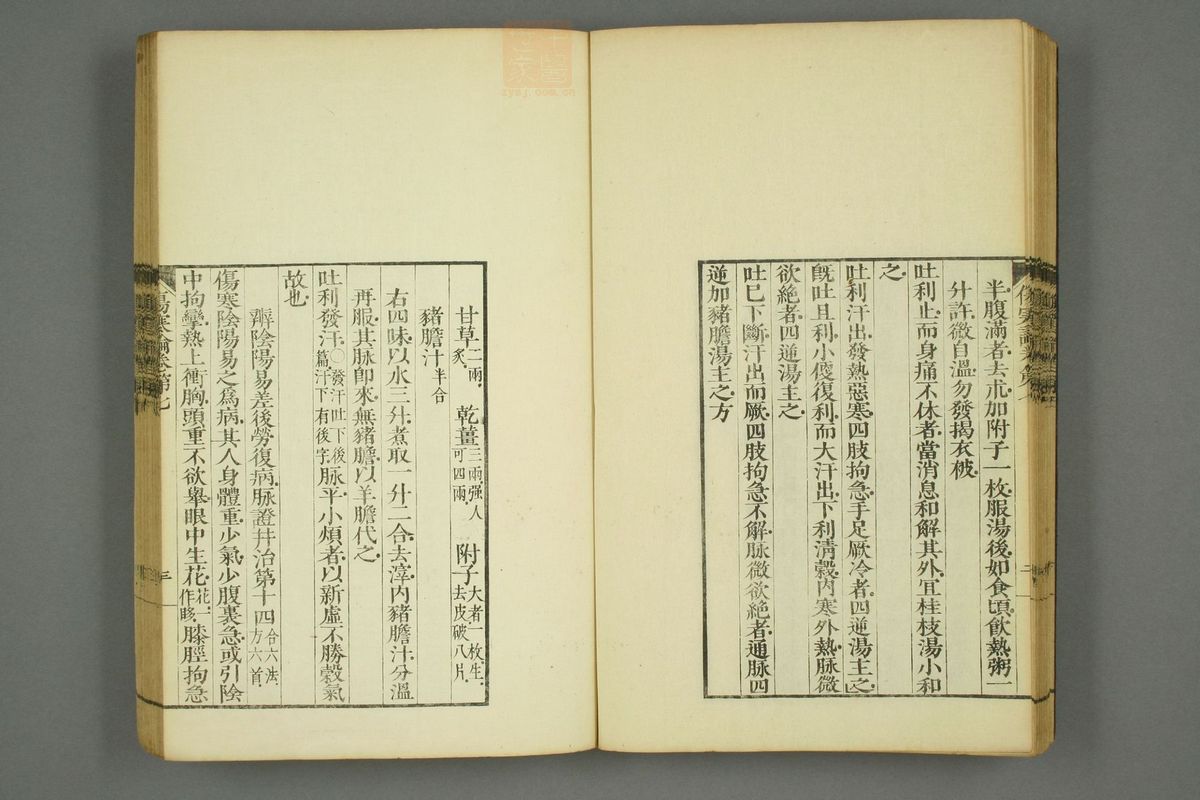 半腹滿者去朮加附子一枚服湯後如食頃飲熱粥一
升許微自溫勿發揭衣被
吐利止而身痛不休者當消息和解其外宜桂枝湯小和
之
吐利汗出發熱惡寒四肢拘急手足厥冷者四逆湯主之
既吐且利小便復利而大汗出下利清穀內寒外熱脈微
欲絶者四逆湯主之
吐巳下斷汗出而厥四肢拘急不解脈微欲絶者通脈四
逆加豬膽湯主之方
甘草二兩炙 乾薑三兩强人可四兩 附子大者一枚生去皮破八片
豬膽汁半合
右四味以水三升煮取一升二合去滓內豬膽汁分溫
再服其脈即來無豬膽以羊膽代之
吐利發汗〇發汗吐下後篇汗下有後字脈平小煩者以新虛不勝穀氣
故也
辨陰陽易差後勞復病脈證并治第十四合六法方六首
傷寒陰陽易之爲病其人身體重少氣少腹裏急或引陰
中拘攣熱上衝胸頭重不欲舉眼中生花花一作眵膝脛拘急
傷寒論卷第七 三
zysj.com.cn